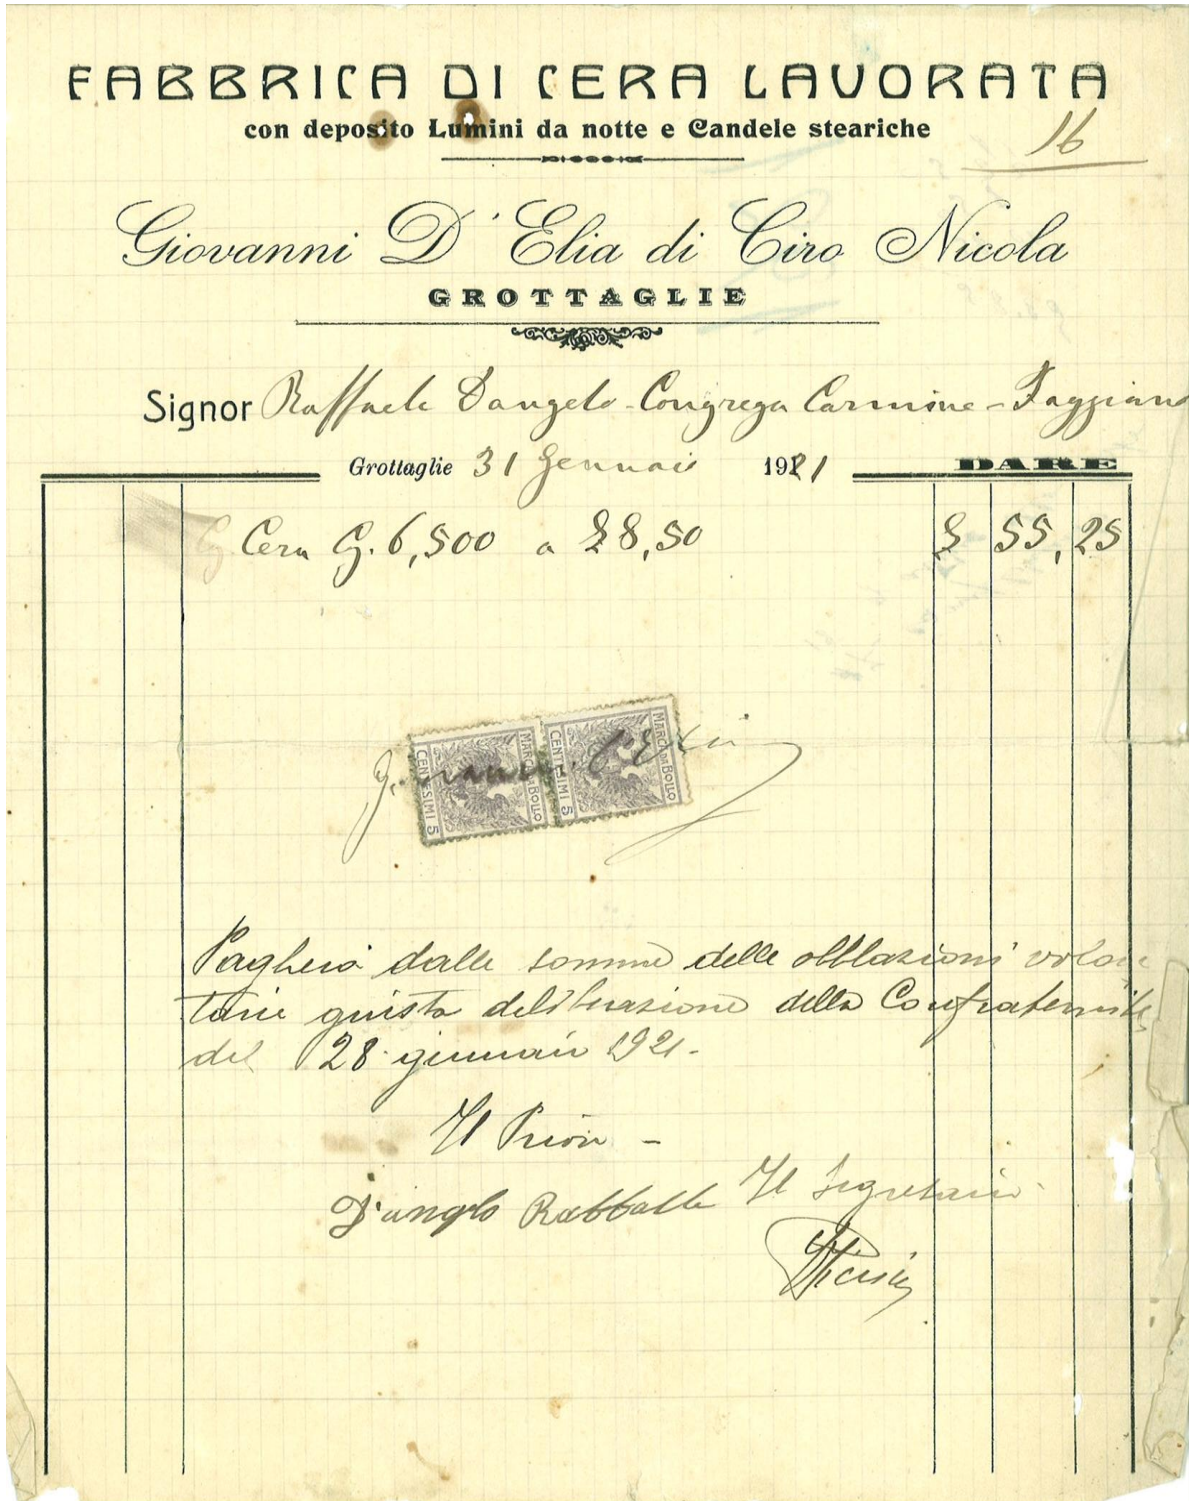 FABBRICA DI CERA LAVORATA
con deposito Lumini da notte e Candele steariche
16
Giovanni D'Elia di Ciro Nicola
GROTTAGLIE
Signor Raffaele Dangelo - Congrega Carmine - Faggiano
Grottaglie 31 Gennaio 1921 DARE
Cera Cg. 6,500 a £ 8,50 £ 55,25
MARCA DA BOLLO
CENTESIMI 5
MARCA DA BOLLO
CENTESIMI 5
Giovanni D'Elia
Pagherà dalle somme delle obblazioni volon
tarie giusta deliberazione della Confraternita
del 28 gennaio 1921.
Il Priore -
D'angelo Raffaele Il Segretario